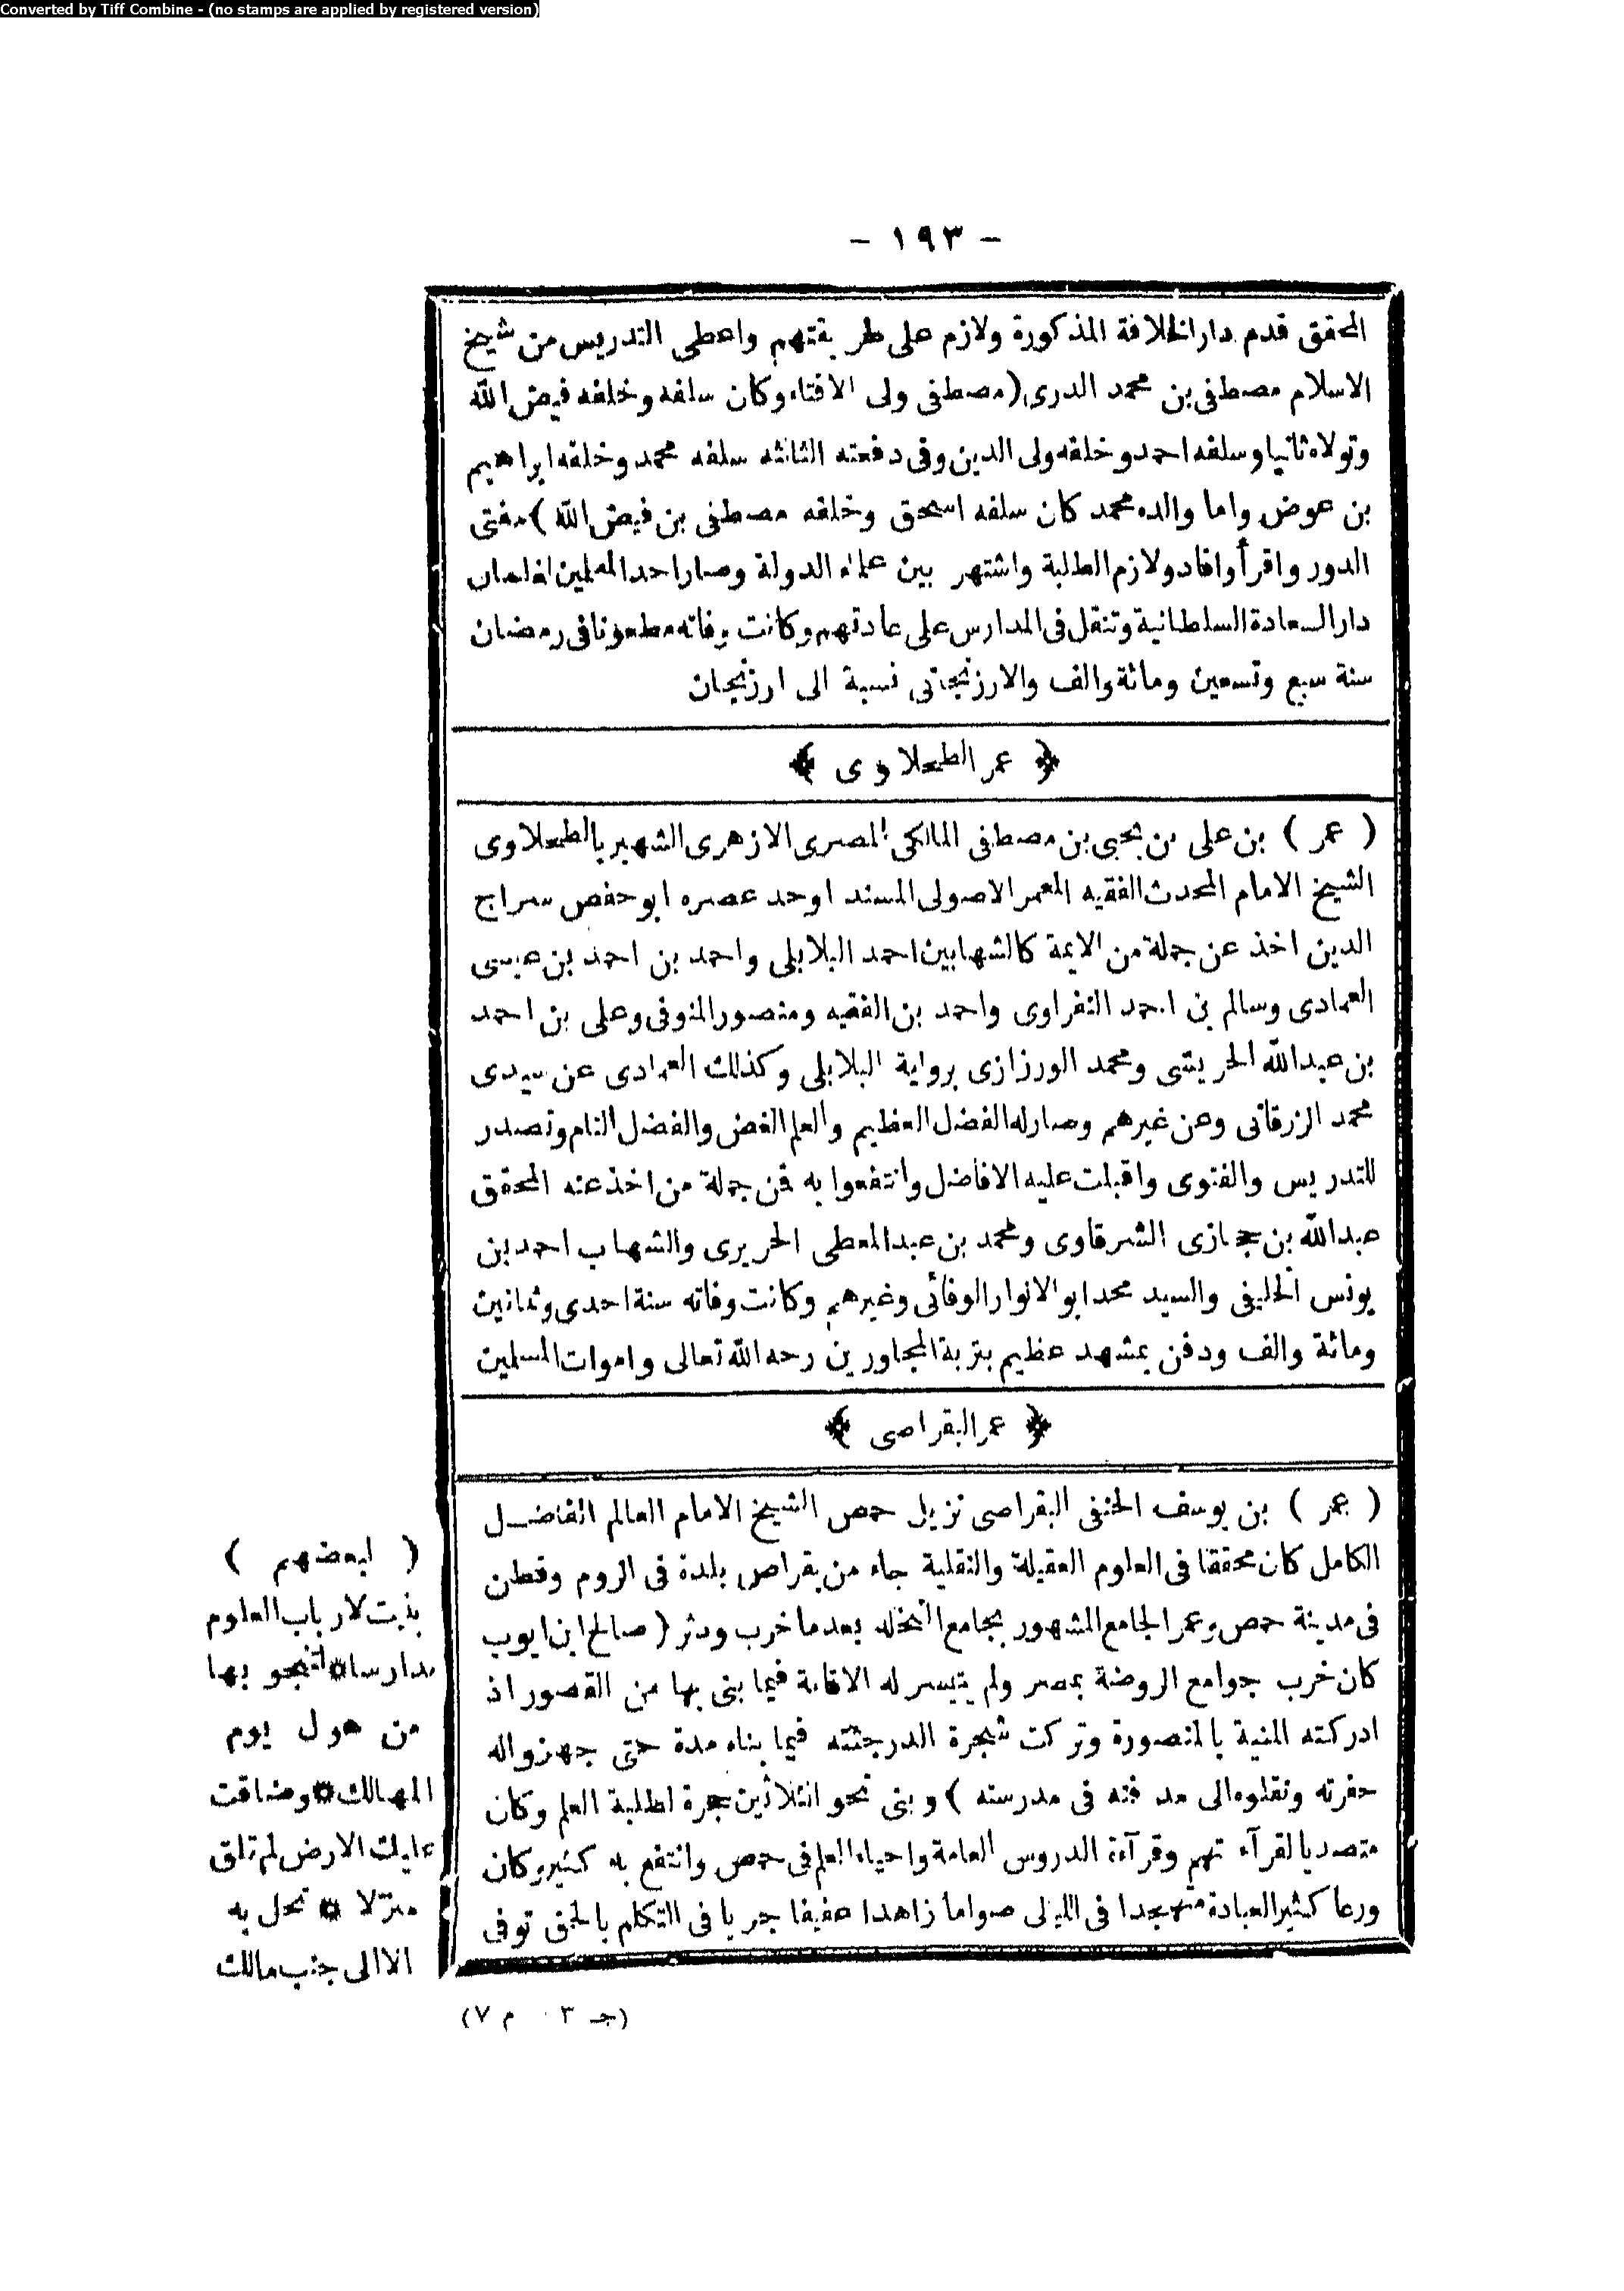 Converted by Tiff Combine - (no stamps are applied by registered version)
- ١٩٣ -
المحقق قدم دار الخلافة المذكورة ولازم على طريقتهم واعطى التدريس من شيخ
الاسلام مصطفى بن محمد الدرى (مصطفى ولى الافتاء وكان سلفه وخلفه فيض الله
وتولاه ثانيا وسلفه احمد وخلفه ولى الدين وفى دفعته الثالثه سلفه محمد وخلفه ابراهيم
بن عوض واما والده محمد كان سلفه اسحق وخلفه مصطفى بن فيض الله) مفتى
الدور واقرأ وافاد ولازم الطلبة واشتهر بين علماء الدولة وصار احد المعلمين لغلمان
دار السعادة السلطانية وتنقل فى المدارس على عادتهم وكانت وفاته مطعونا فى رمضان
سنة سبع وتسعين ومائة والف والارزنجانى نسبة الى ارزنجان
﴿ عمر الطحلاوى ﴾
( عمر ) بن على بن يحيى بن مصطفى المالكى المصرى الازهرى الشهير بالطحلاوى
الشيخ الامام المحدث الفقيه المعمر الاصولى المسند اوحد عصره ابو حفص سراج
الدين اخذ عن جملة من الايمة كالشهابين احمد البلابلى واحمد بن احمد بن عيسى
العمادى وسالم بن احمد النفراوى واحمد بن الفقيه ومنصور المنوفى وعلى بن احمد
بن عبدالله الحريشى ومحمد الورزازى برواية البلابلى وكذلك العمادى عن سيدى
محمد الزرقانى وعن غيرهم وصار له الفضل العظيم والعلم الغض والفضل التام وتصدر
للتدريس والفتوى واقبلت عليه الافاضل وانتفعوا به فمن جملة من اخذ عنه المحقق
عبدالله بن حجازى الشرقاوى ومحمد بن عبدالمعطى الحريرى والشهاب احمد بن
يونس الخليفى والسيد محمد ابو الانوار الوفائى وغيرهم وكانت وفاته سنة احدى وثمانين
ومائة والف ودفن بمشهد عظيم بتربة المجاورين رحمه الله تعالى واموات المسلمين
﴿ عمر البقراصى ﴾
( عمر ) بن يوسف الحنفى البقراصى نزيل حمص الشيخ الامام العالم الفاضل
الكامل كان محققا فى العلوم العقيلة والنقلية جاء من بقراص بلدة فى الروم وقطن
فى مدينة حمص وعمر الجامع المشهور بجامع النخله بعد ما خرب ودثر (صالح ابن ايوب
كان خرب جوامع الروضة بمصر ولم يتيسر له الاقامة فيما بنى بها من القصور اذ
ادركته المنية بالمنصورة وتركت شجرة الدر جثته فيما بناه مدة حتى جهزواله
حفرته ونقلوه الى مدفنه فى مدرسته ) وبنى نحو الثلاثين حجرة لطلبة العلم وكان
متصديا لقرآءتهم وقرآءة الدروس العامة واحياء العلم فى حمص وانتفع به كثير وكان
ورعا كثير العبادة متهجدا فى الليالى صواما زاهدا عفيفا جريا فى التكلم بالحق توفى
( لبعضهم )
بنيت لارباب العلوم
مدارسا * لتنجو بها
من هول يوم
المهالك * وضاقت
عليك الارض لم تلق
منزلا * تحل به
الا الى جنب مالك
(جـ ٣ م ٧)